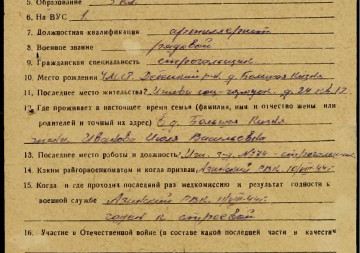 5. Образование 3 кл.
6. На ВУС 1
7. Должностная квалификация артиллерист
8. Военное звание рядовой
9. Гражданская специальность строгальщик
10. Место рождения р-н д. Большая Кизня
11. Последнее место жительства? д. 24 кв. 17
12. Где проживает в настоящее время семья (фамилия, имя и отчество жены или
родителей и точный их адрес) д. Большая Кизня
жена Иванова Васильевна
13. Последнее место работы и должность з-д №74 строгальщик
14. Каким райгорвоенкоматом и когда призван Азинский РВК
15. Когда и где проходил последний раз медкомиссию и результат годности к
военной службе Азинский РВК
годен к строевой
16. Участие в Отечественной войне (в составе какой последней части и качестве